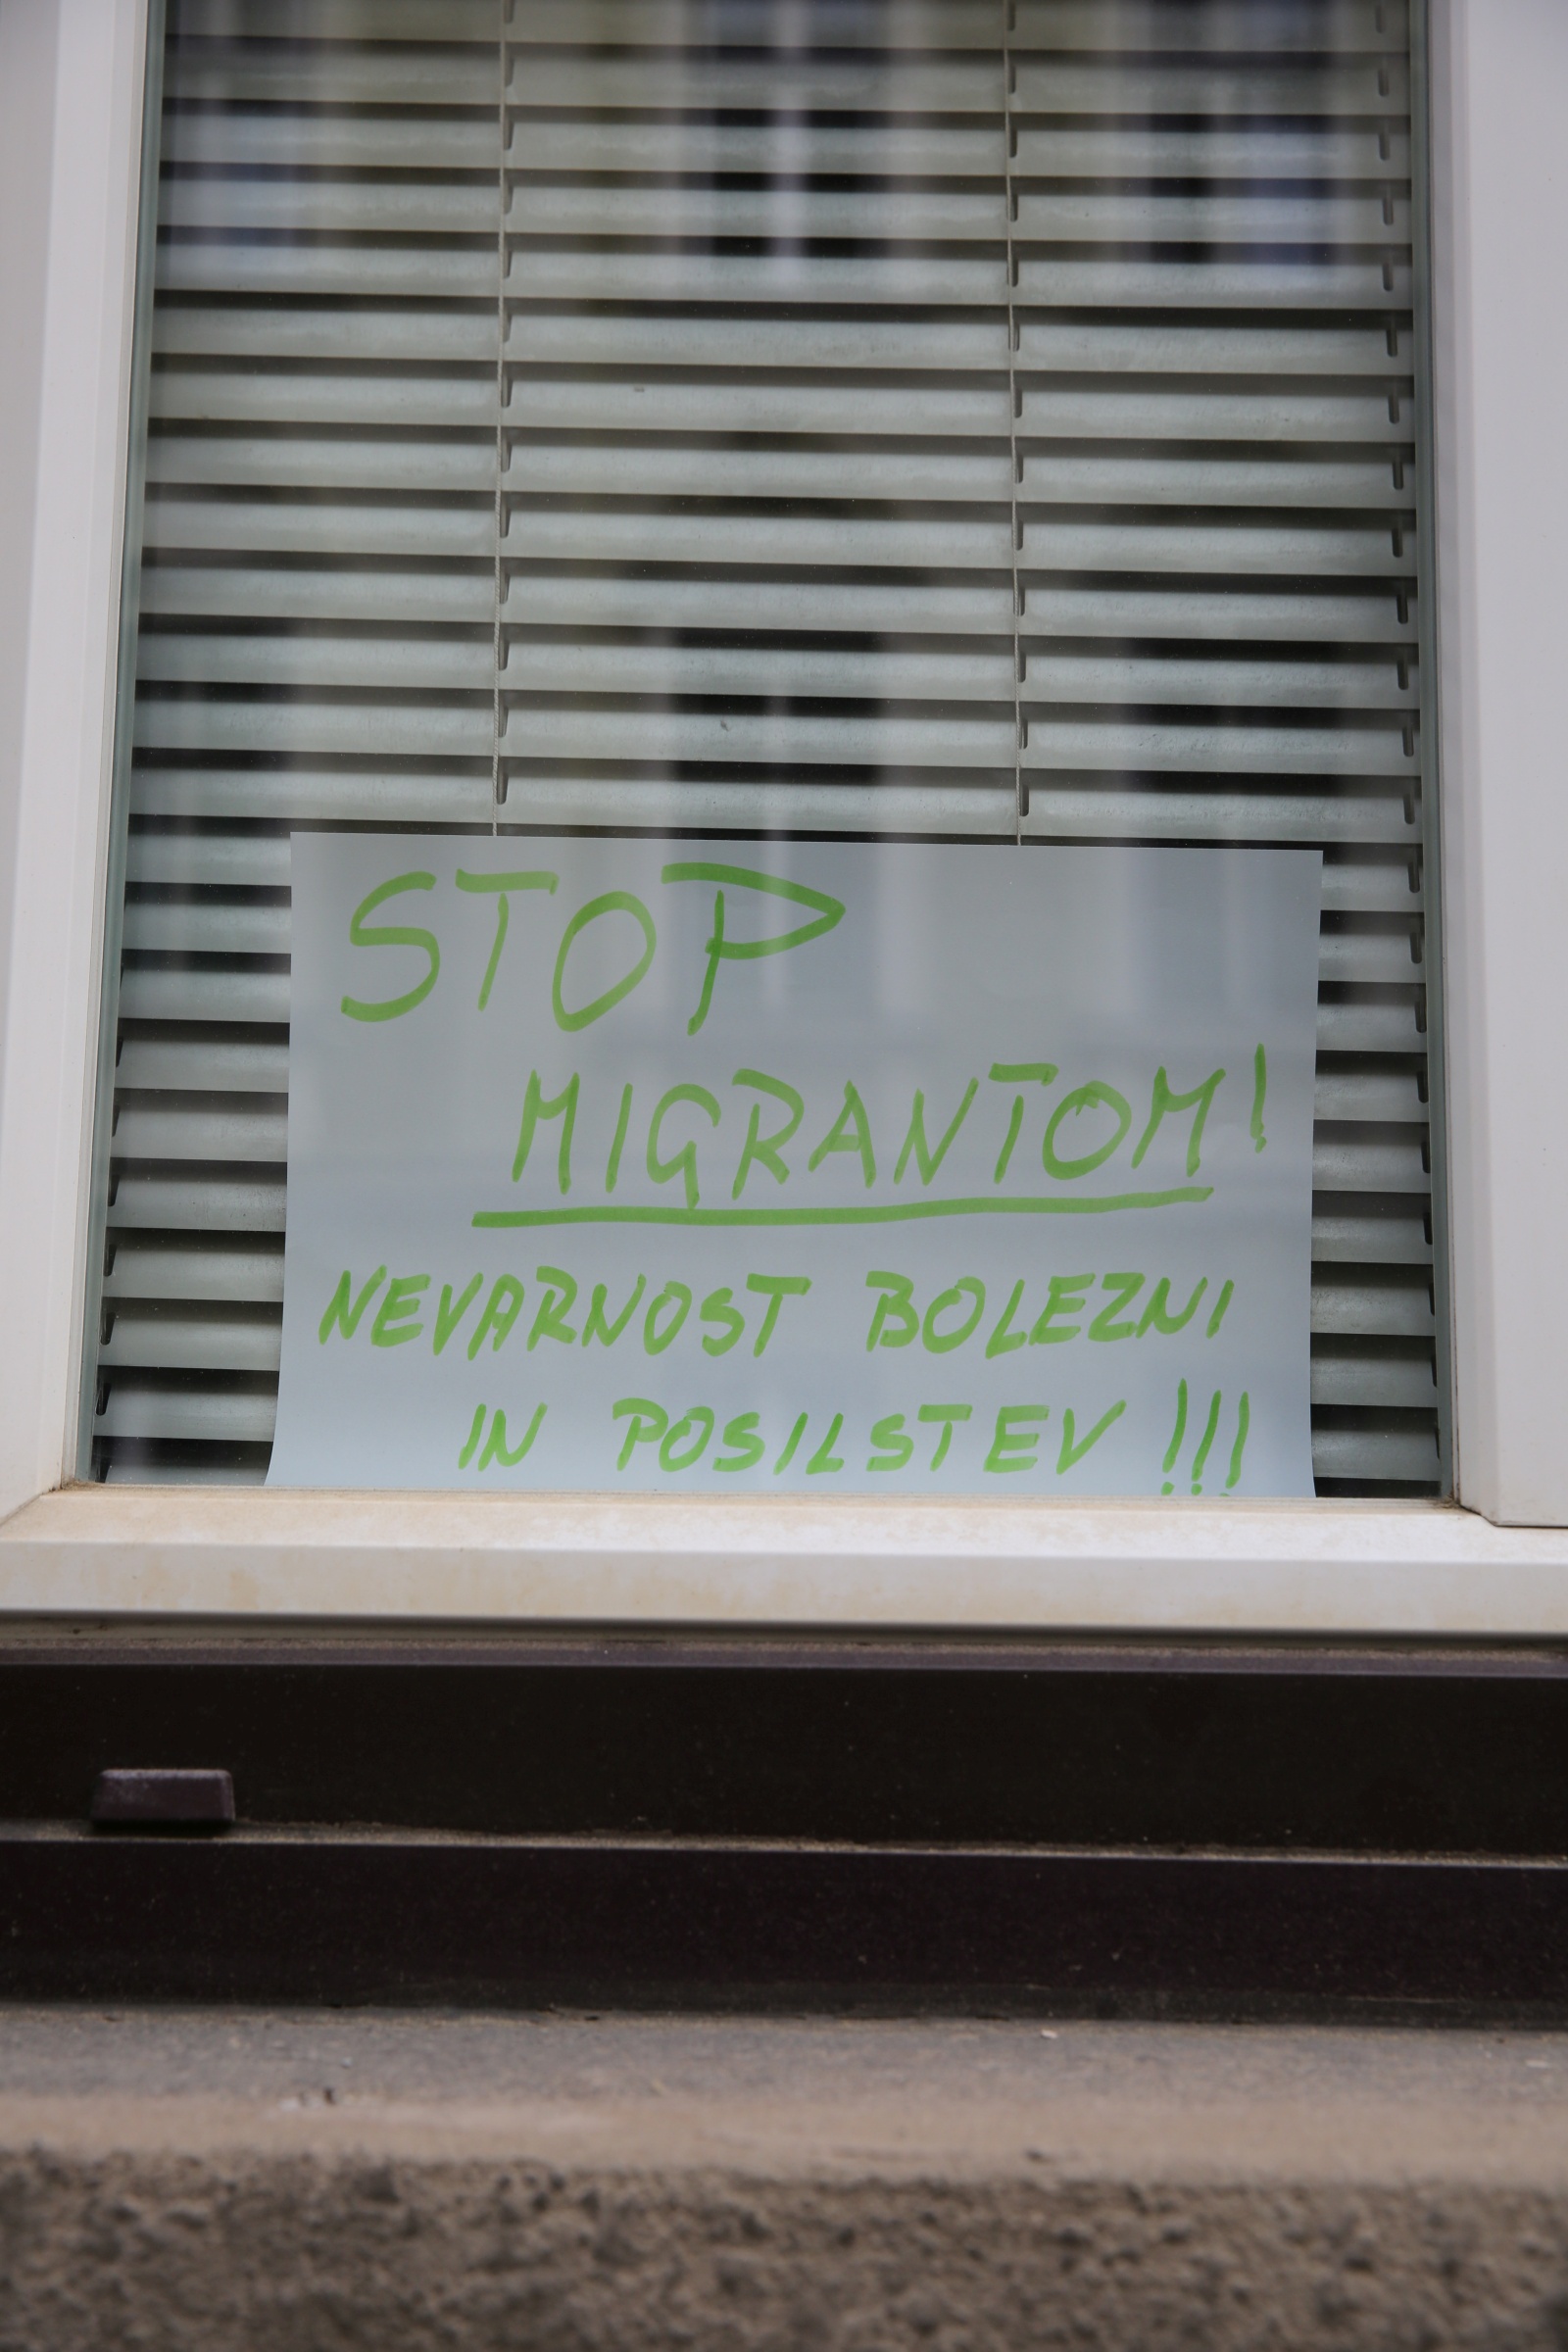 STOP
MIGRANTOM!
NEVARNOST BOLEZNI
IN POSILSTEV !!!